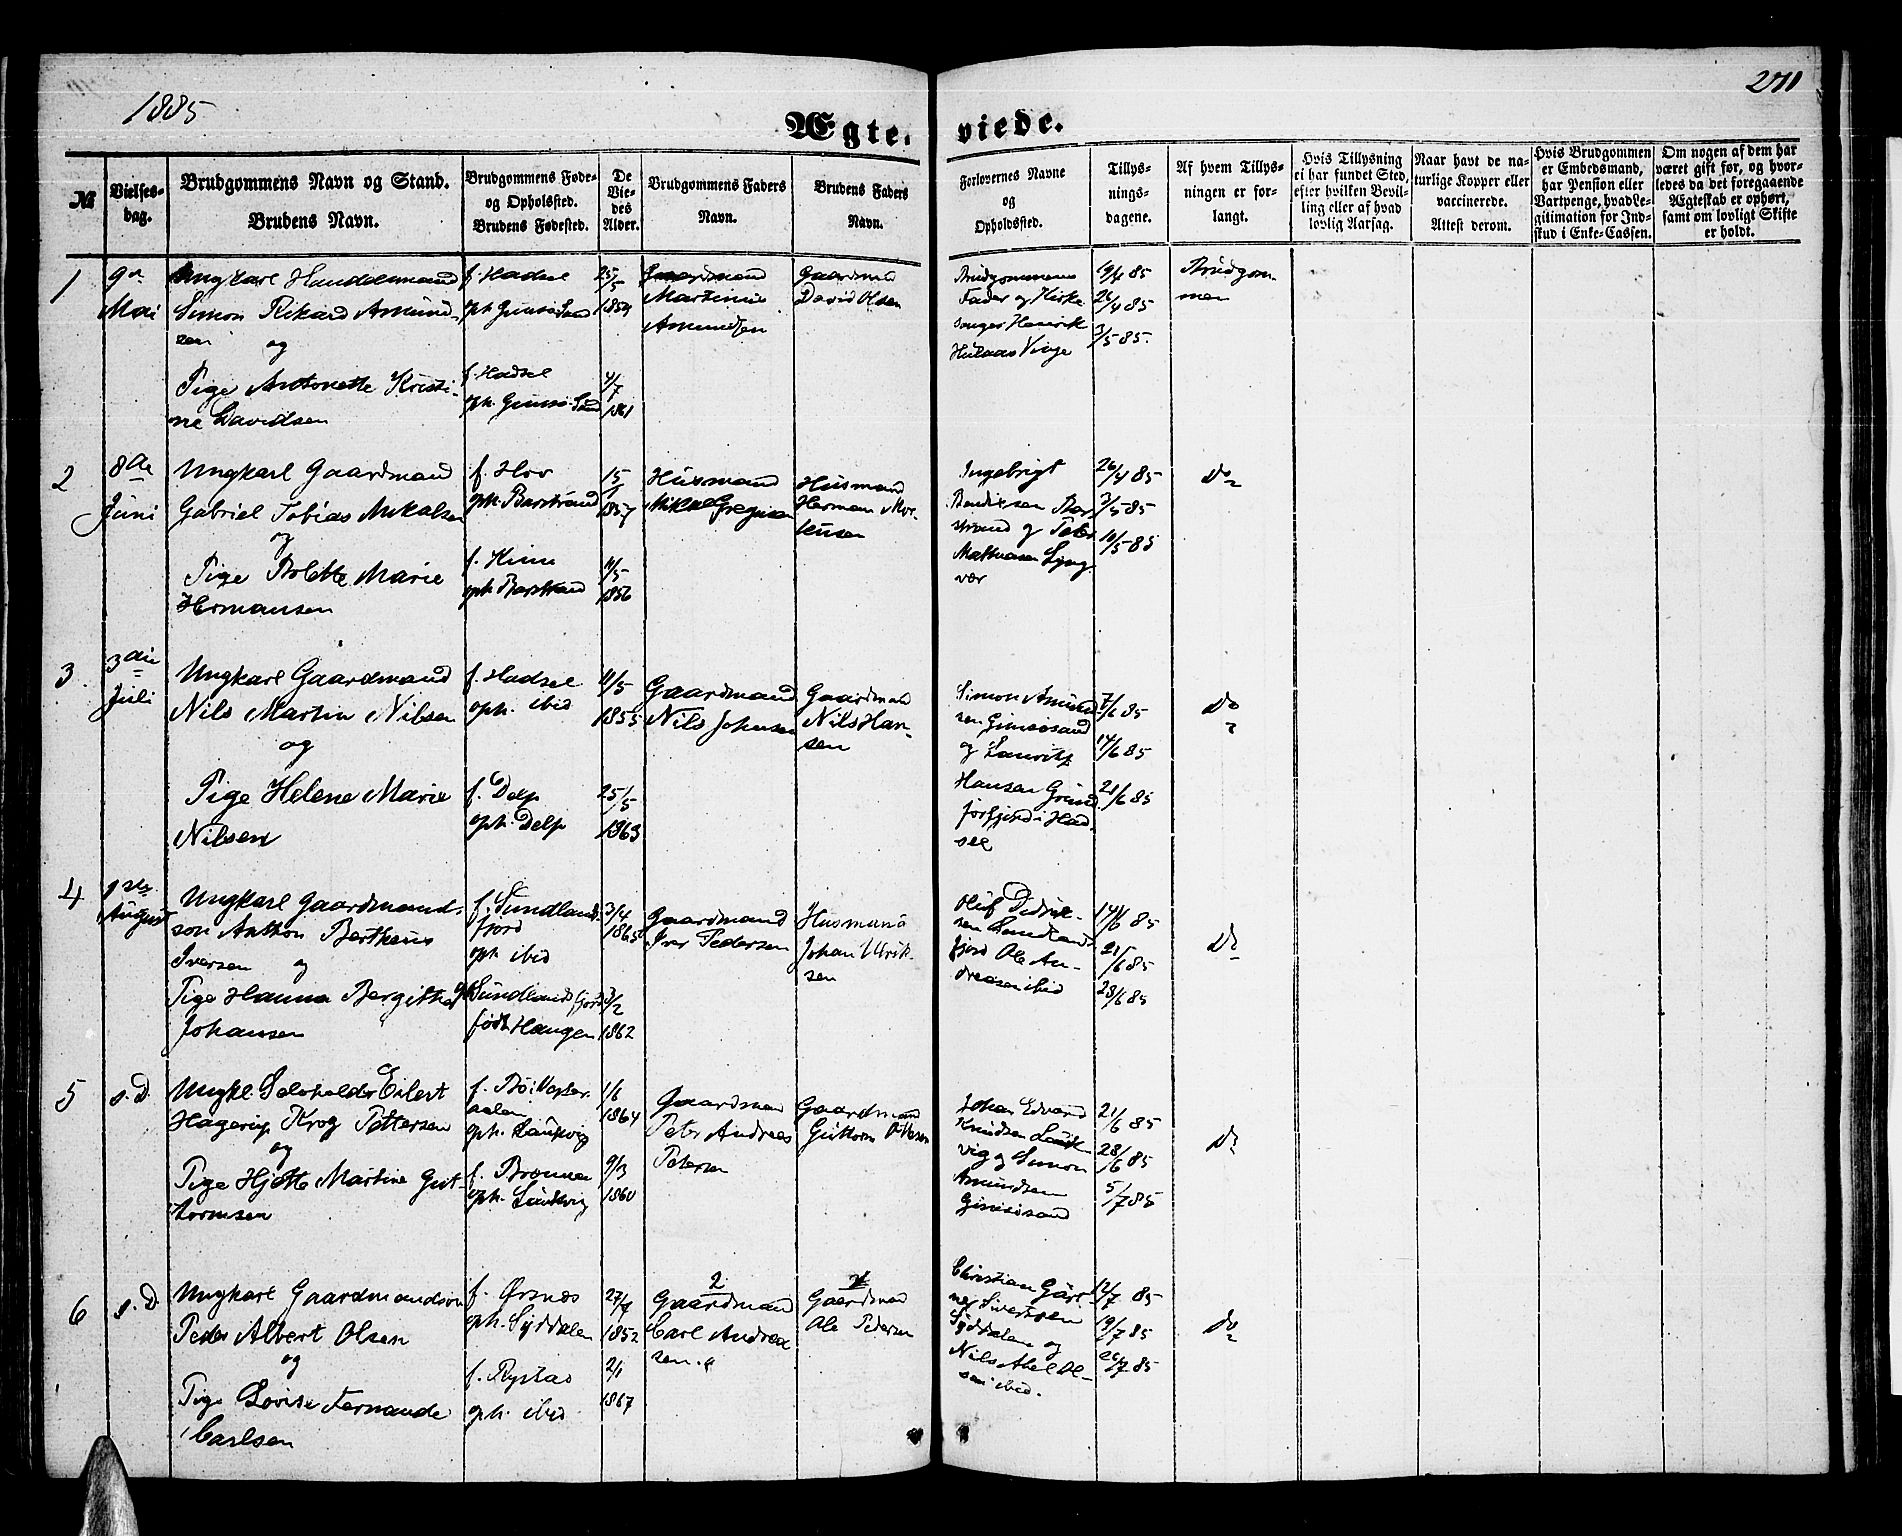 1885
271
Ægte.
viede.
№
Vielses-
dag.
Brudgommens Navn og Stand.
Brudens Navn.
Brudgommens Føde-
og Opholssted.
Brudens Fødested.
De
Vie-
des
Alder.
Brudgommens Faders
Navn.
Brudens Faders
Navn.
Forlovernes Navne
og
Opholdssted.
Tillys-
nings-
dagene.
Af hvem Tillys-
ningen er for-
langt.
Hvis Tillysning
ei har fundet Sted,
efter hvilken Bevil-
ling eller af hvad
lovlig Aarsag.
Naar havt de na-
turlige Kopper eller
vaccinerede.
Attest derom.
Hvis Brudgommen
er Embedsmand,
har Pension eller
Vartpenge, hvad Le-
gitimation for Ind-
skud i Enke-Cassen.
Om nogen af dem har
været gift før, og hvor-
ledes da det foregaaende
Ægteskab er ophørt,
samt om lovligt Skifte
er holdt.
1
9de
Mai
Ungkarl Handelsmand
Simon Rikard Amund-
sen og
Pige Antonette Kristi-
ne Davidsen
f. Hadsel
oph. Gimsøsand
25/5
1859
f. Hadsel
oph. Gimsø-Sand
4/7
1861
Gaardmand
Martinus
Amundsen
Gaardmand
David Olsen
Brudgommens
Fader og Kirke
sanger Henrik
Vinje
19/4 85
26/4 85
3/5 85.
Brudgom-
men
2
8de
Juni
Ungkarl Gaardmand
Gabriel Tobias Mikalsen
og
Pige Bolette Marie
Hermansen
f. Hov
oph. Barstrand
15/1
1857
f. Hime
oph. Barstrand
11/5
1856
Husmand
Mikal Gregusen
Husmand
Herman Mor-
tensen
Ingebrigt
Bendiksen Bar
strand og Peter
Mathiasen Lyng-
vær
26/4 85
3/5 85
10/5 85
Do
3.
3die
Juli
Ungkarl Gaardmand
Nils Martin Nilsen
og
Pige Helene Marie
Nilsen
f. Hadsel
oph. ibid
11/5
1855
f. Delp
oph. Delp
25/5
1863
Gaardmand
Nils Johnsen
Gaardmand
Nils Han-
sen
Simon Amund
sen Gimsøsand
og Lauritz
Hansen Grund
førfjord i Had-
sel
7/6 85
14/6 85
21/6 85
Do
4
1ste
August
Ungkarl Gaardmands-
søn Anthon Bertheus
Iversen og
Pige Hanna Bergitha
Johansen
f. Sundlands-
fjord
oph ibid
3/4
1865
oph Sundlandsfjord
født Haugen
3/2
1862
Gaardmand
Iver Pedersen
Husmand
Johan Ulrik-
sen
Oluf Didrik-
sen Sundlands
fjord Ole An-
dreasen ibid
14/6 85
21/6 85
28/6 85
Do
5
s. D.
Ungkl. Selveholder Eilert
Hagerup Krog Pettersen
og
Pige Hjette Martine Gut-
tormsen
f. Bø i Vester-
aalen
oph. Laukvig
1/6
1864
f. Brønnøen
oph. Laukvig
9/3
1860
Gaardman
Peter Andreas
Petersen
Gaardmand
Guttorm
Johan Edvard
Knudsen Lauk
vig og Simon
Amundsen
Gimsøsand
21/6 85
28/6 85
5/7 85
Do
6
s. D
Ungkarl Gaardmandssøn
Peder Albert Olsen
og
Pige Lovise Fernande
Carlsen
f. Ørsnes
oph. Syddalen
27/7
1852
f. Rystad
oph. ibid
2/1
1867
2
Gaardmand
Carl Andrea
sen.
1
Gaardmand
Ole Pedersen
Christian Gärt-
ner Sivertsen
Syddalen og
Nils Abel Ol-
sen ibid.
12/7 85
19/7 85
26/7 85
Do